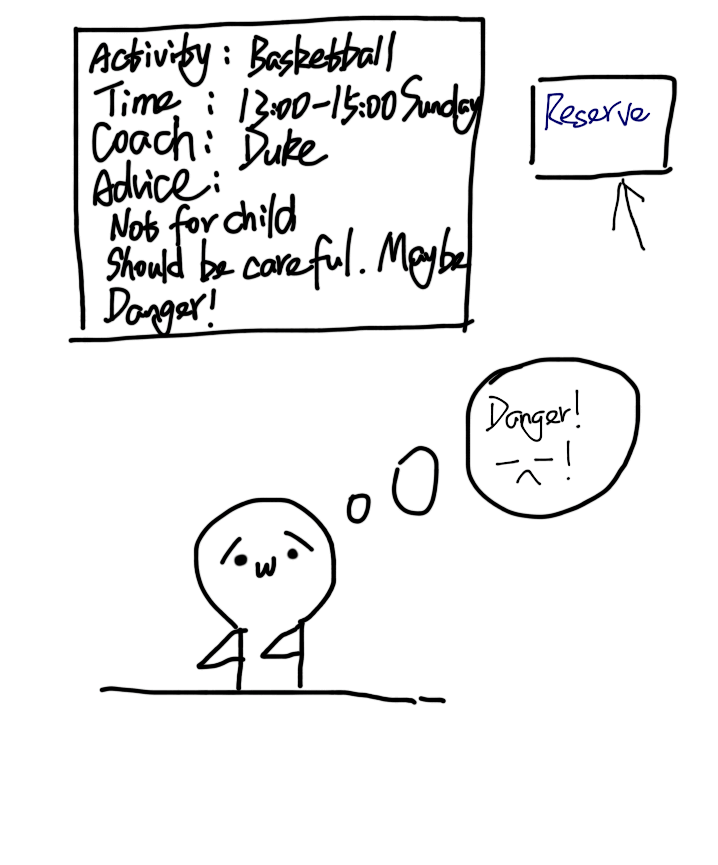 Activity: Basketball
Time : 13:00-15:00 Sunday
Coach: Duke
Advice:
Not for child
Should be careful. Maybe
Danger!
Reserve
Danger!